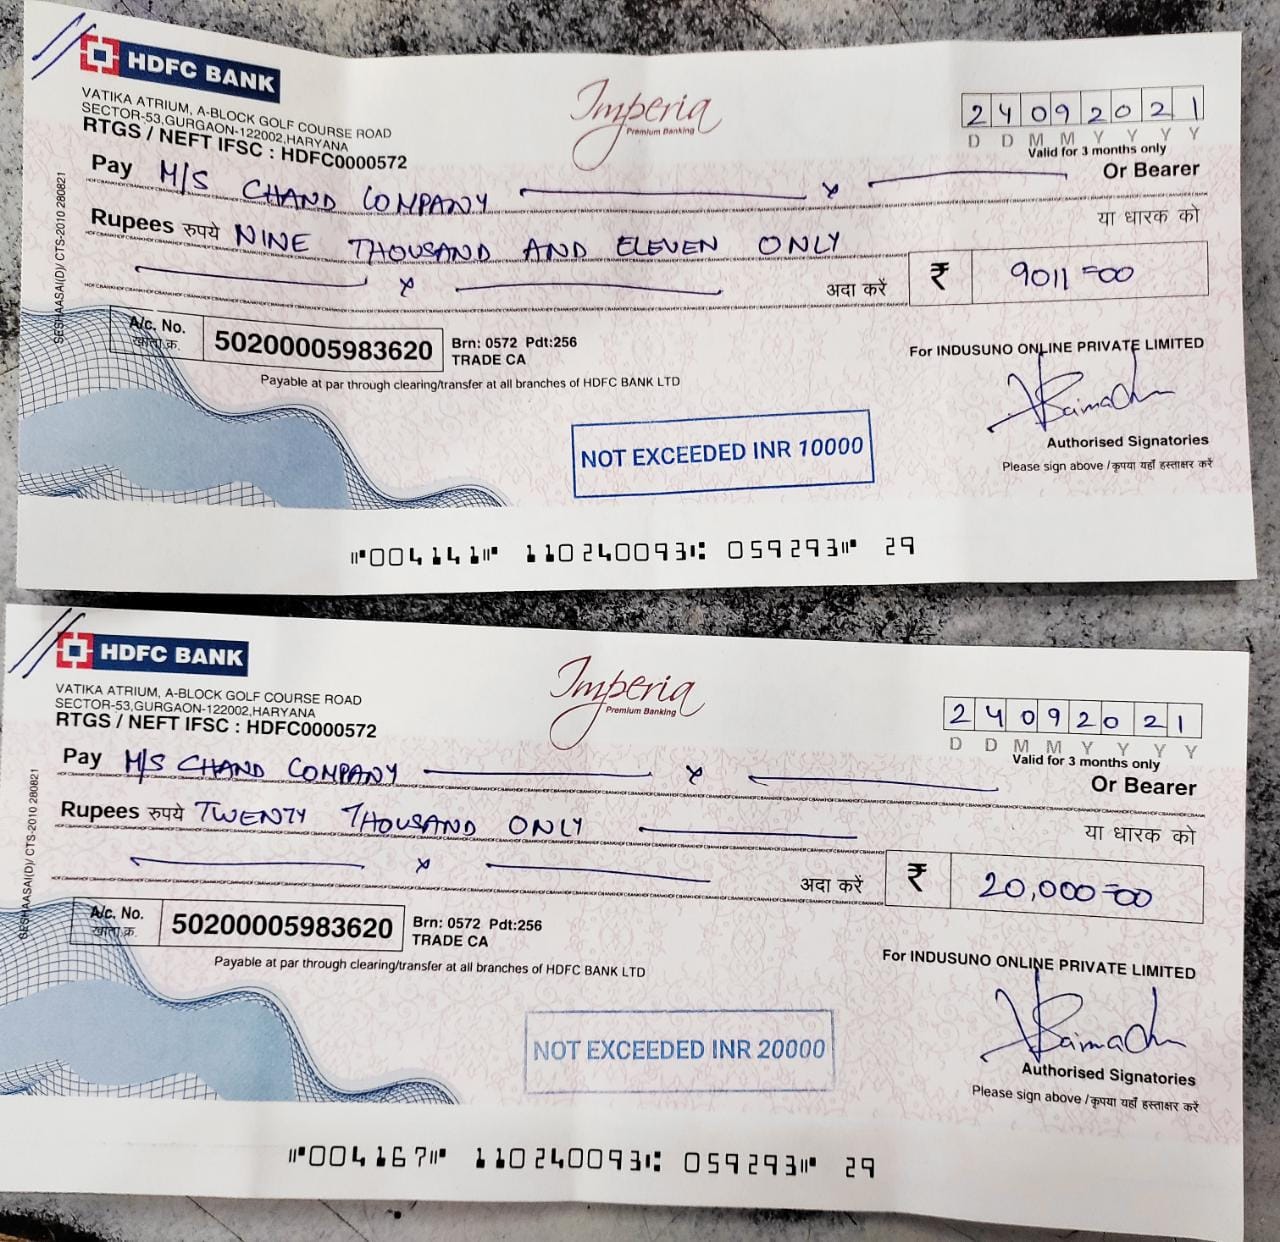 HDFC BANK
VATIKA ATRIUM, A-BLOCK GOLF COURSE ROAD
SECTOR-53,GURGAON-122002,HARYANA
RTGS / NEFT IFSC : HDFC0000572
Imperia
Premium Banking
24092021
D D M M Y Y Y Y
Valid for 3 months only
Pay M/S CHAND COMPANY x Or Bearer
या धारक को
Rupees रुपये NINE THOUSAND AND ELEVEN ONLY
x अदा करें ₹ 9011=00
A/c. No. 50200005983620 Brn: 0572 Pdt:256
खाता क्र. TRADE CA
Payable at par through clearing/transfer at all branches of HDFC BANK LTD
For INDUSUNO ONLINE PRIVATE LIMITED
NOT EXCEEDED INR 10000
Authorised Signatories
Please sign above / कृपया यहाँ हस्ताक्षर करें
SESHAASAI(D)/ CTS-2010 280821
⑈004141⑈ 110240093⑆ 059293⑈ 29
HDFC BANK
VATIKA ATRIUM, A-BLOCK GOLF COURSE ROAD
SECTOR-53,GURGAON-122002,HARYANA
RTGS / NEFT IFSC : HDFC0000572
Imperia
Premium Banking
24092021
D D M M Y Y Y Y
Valid for 3 months only
Pay M/S CHAND COMPANY x Or Bearer
या धारक को
Rupees रुपये TWENTY THOUSAND ONLY
x अदा करें ₹ 20,000=00
A/c. No. 50200005983620 Brn: 0572 Pdt:256
खाता क्र. TRADE CA
Payable at par through clearing/transfer at all branches of HDFC BANK LTD
For INDUSUNO ONLINE PRIVATE LIMITED
NOT EXCEEDED INR 20000
Authorised Signatories
Please sign above / कृपया यहाँ हस्ताक्षर करें
SESHAASAI(D)/ CTS-2010 280821
⑈004167⑈ 110240093⑆ 059293⑈ 29